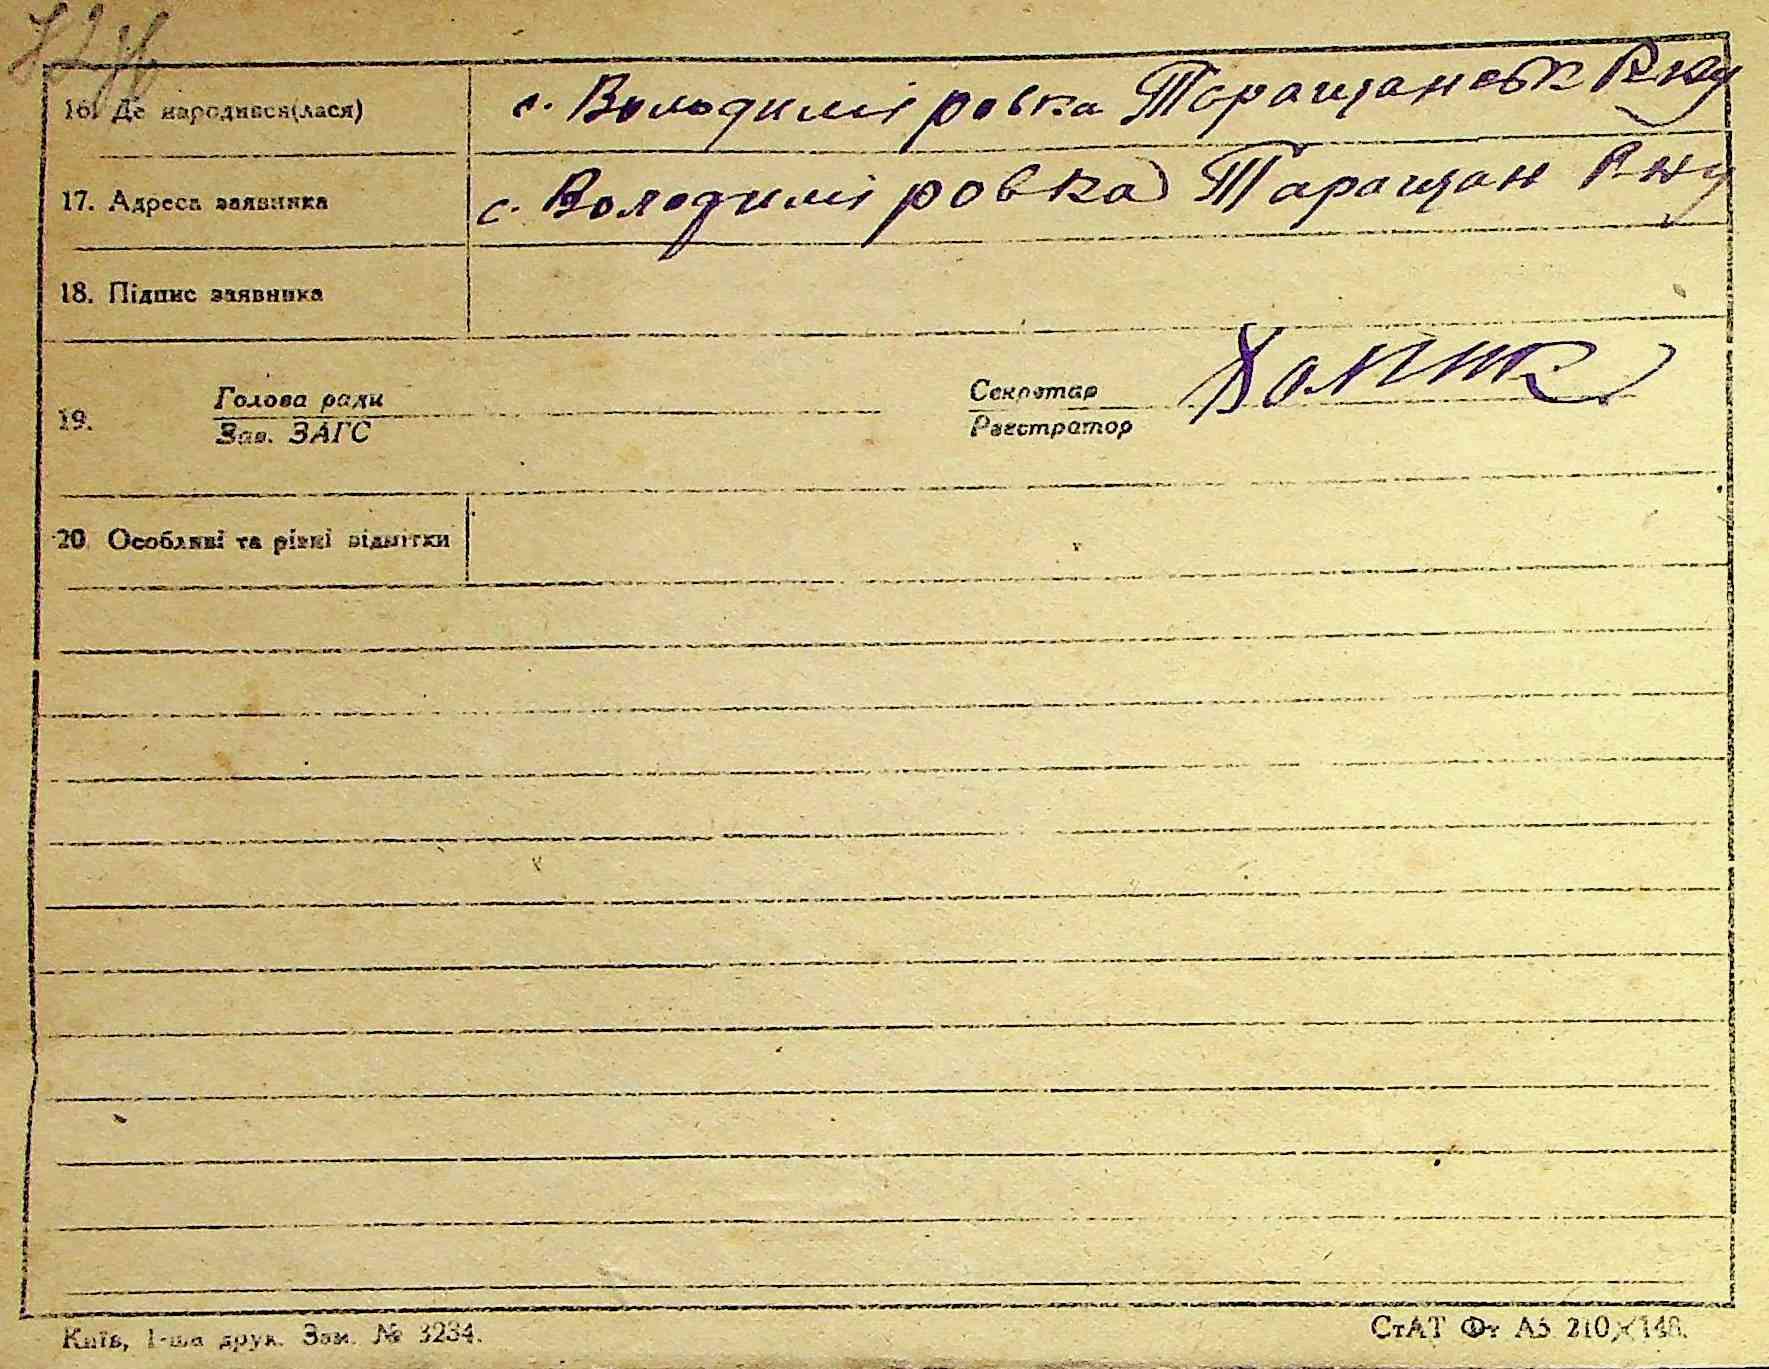 16. Де народився(лася) с. Вольодиміровка Таращанськ Р-ну
17. Адреса заявника с. Володиміровка Таращан Р-ну
18. Підпис заявника
Голова ради Секретар
19.
Зав. ЗАГС Реєстратор
20. Особливі та різні відмітки
Київ, 1-ша друк. Зам. № 3234. СтАТ Фт А5 210×148.